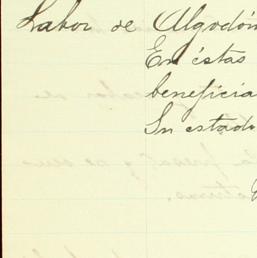 Labor de Algodón
En éstas
beneficia
Su estado